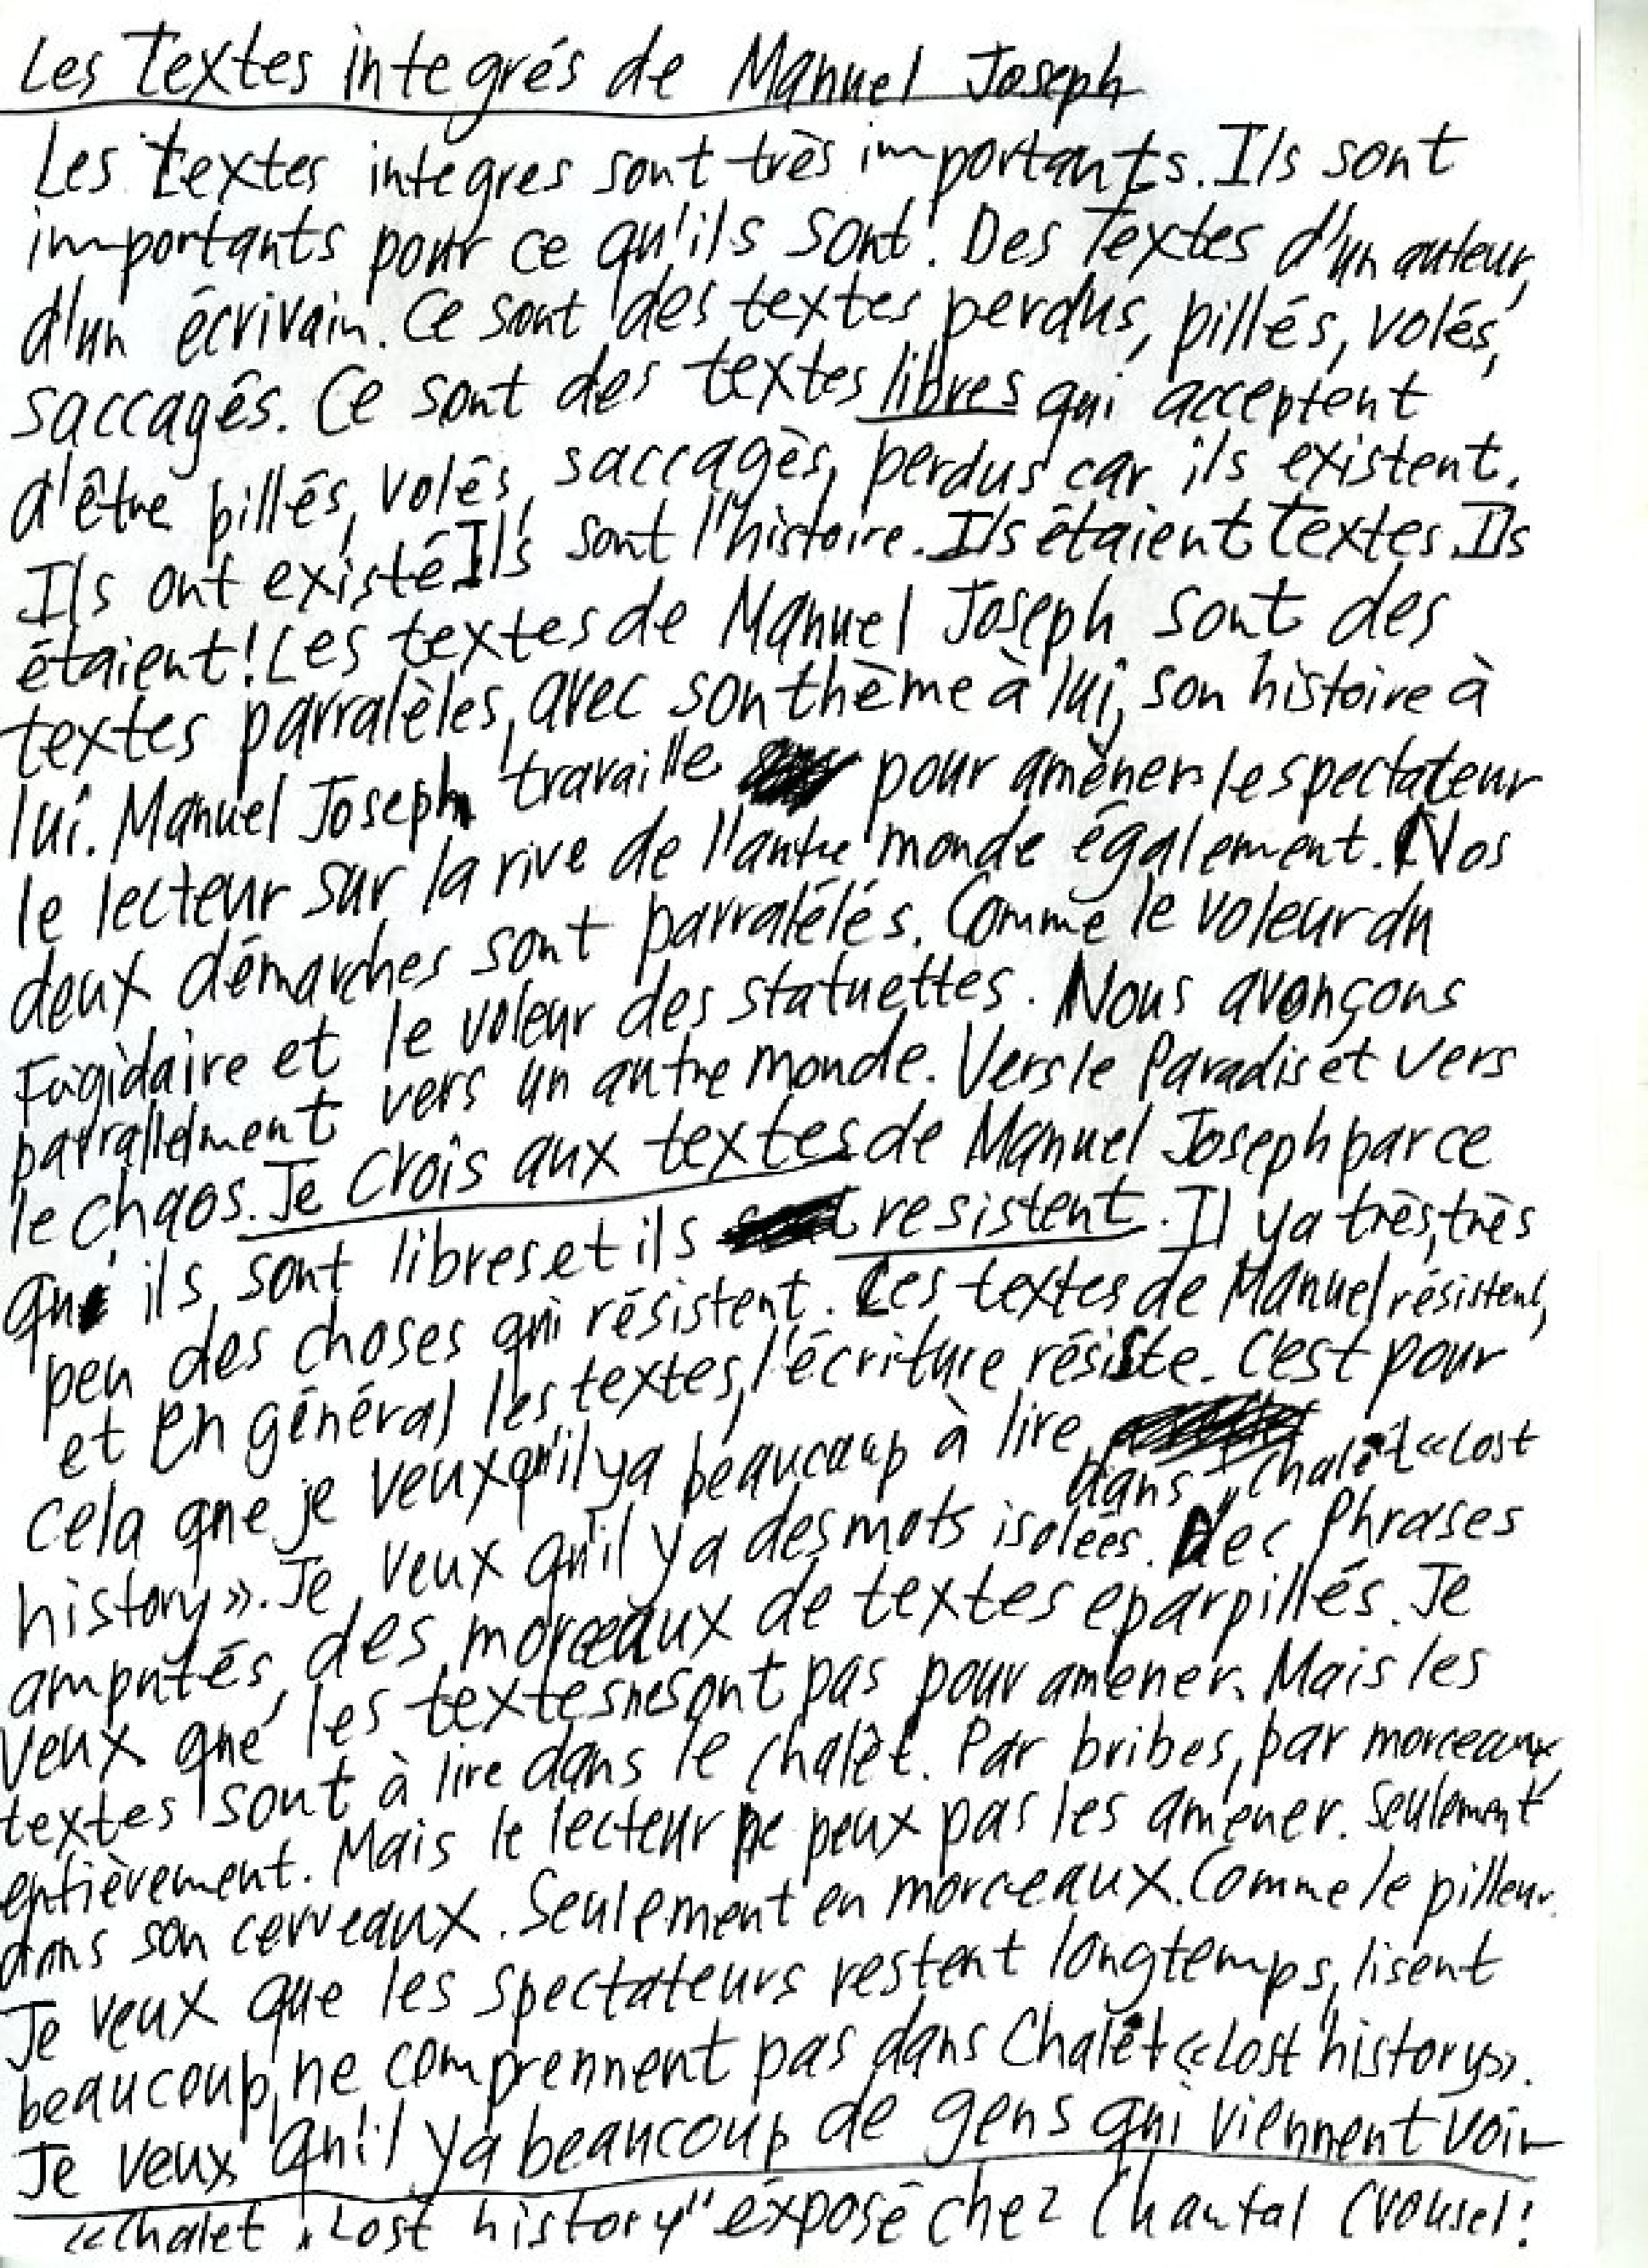 Les Textes integrés de Manuel Joseph
Les textes integres sont très importants. Ils sont
importants pour ce qu'ils sont! Des Textes d'un auteur,
d'un écrivain. Ce sont des textes perdus, pillés, volés,
saccagés. Ce sont des textes libres qui acceptent
d'être pillés, volés, saccagès, perdus car ils existent.
Ils ont existé Ils sont l'histoire. Ils étaient Textes. Ils
étaient! Les textes de Manuel Joseph sont des
textes parralèles, avec son thème à lui, son histoire à
lui. Manuel Joseph travaille pour amèner le spectateur
le lecteur sur la rive de l'autre monde également. Nos
deux démarches sont parralélés. Comme le voleur du
Fügidaire et le voleur des statuettes. Nous avançons
parrallelment vers un autre monde. Vers le Paradis et vers
le chaos. Je crois aux textes de Manuel Joseph parce
que ils sont libres et ils resistent. Il ya très, très
peu des choses qui résistent. Les textes de Manuel résistent,
et en général les textes, l'écriture résiste. C'est pour
cela que je veux qu'il ya beaucoup à lire dans "Chalet «Lost
history». Je veux qu'il ya des mots isolées. Des Phrases
amputés, des morceaux de textes eparpillés. Je
veux que les textes ne sont pas pour amener. Mais les
textes sont à lire dans le chalèt. Par bribes, par morceaux,
entièrement. Mais le lecteur ne peux pas les amener. Seulement
dans son cerveaux. Seulement en morceaux. Comme le pilleur.
Je veux que les spectateurs restent longtemps, lisent
beaucoup, ne comprennent pas dans Chalet «Lost history».
Je veux qu'il ya beaucoup de gens qui viennent voir
«Chalet "Lost history" éxposé chez Chantal Crousel!